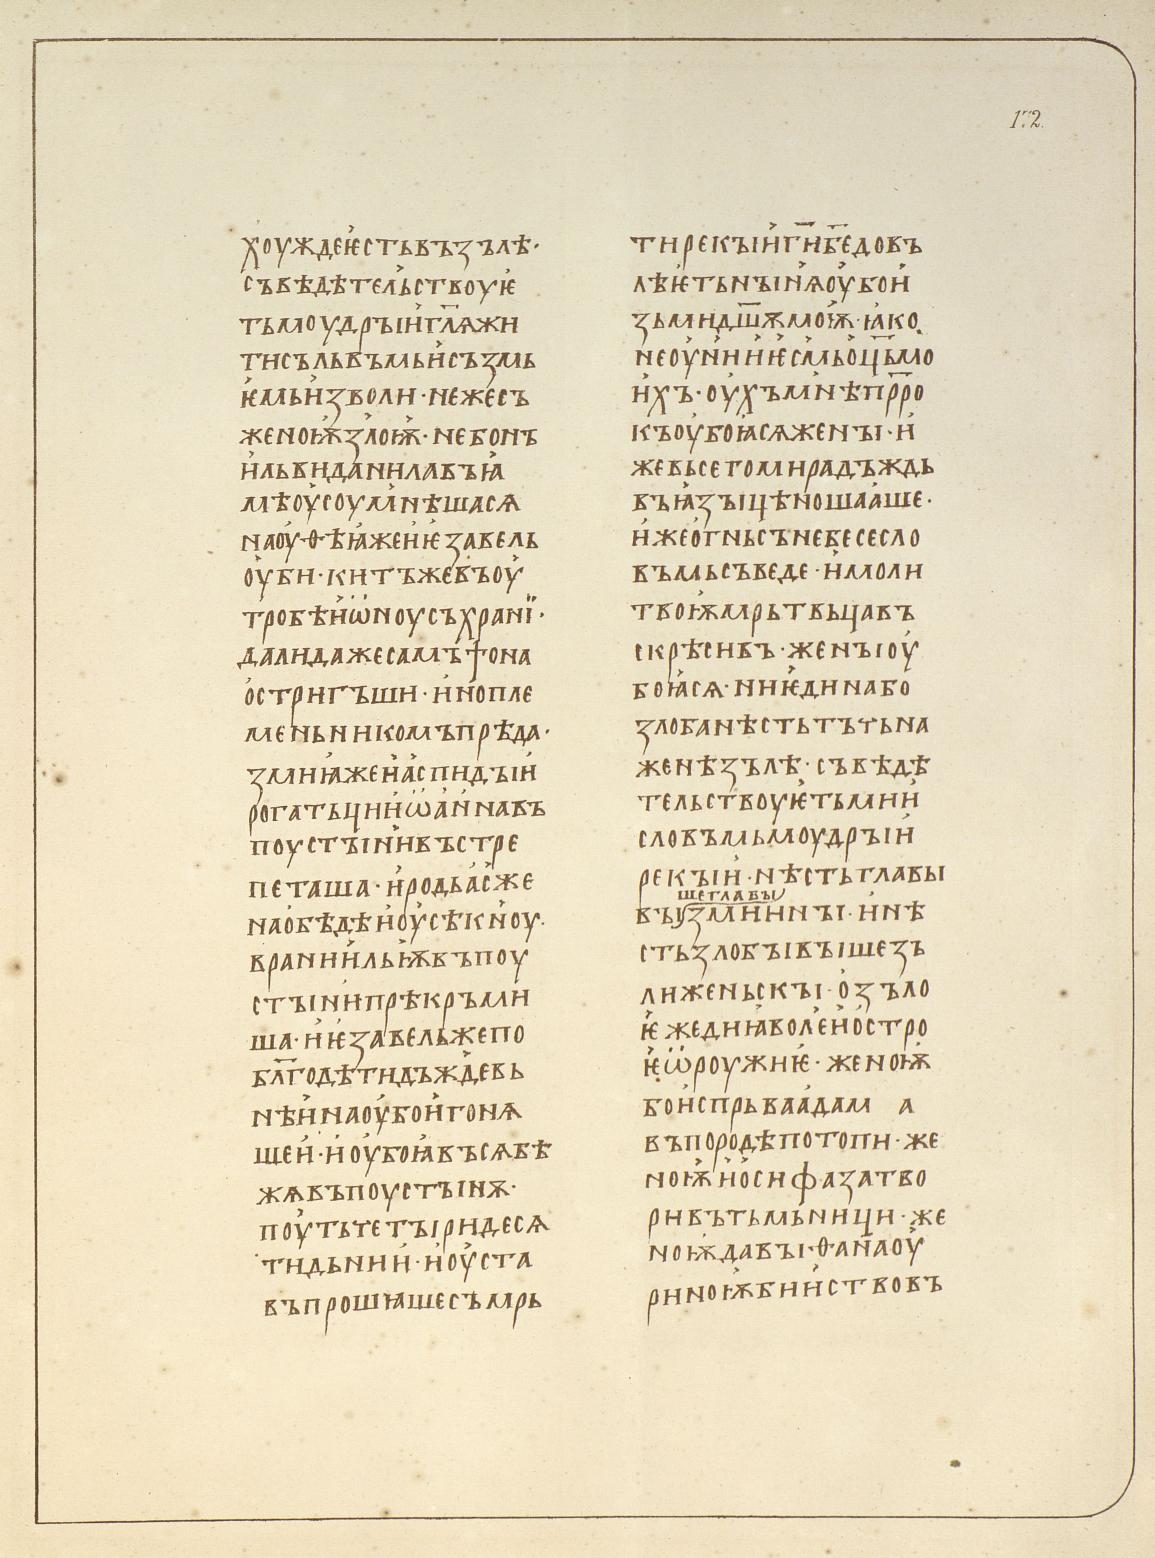 172.
хоуждеѥстьвъзълѣ·
съвѣдѣтельствоуѥ
тьмоудрꙑигл҃ѧжи
тисъльвъмьисъзмь
ѥмьизволи·нежесъ
женоѭзлоѭ·небонъ
ильвиданилавъꙗ
мѣоусоумнѣшасѧ
наоуѳѣꙗжеиѥзавель
оуби·китъжевъоу
тробѣиѡноусъхрані·
далидажесамъѱона
остригъши·инопле
меньникомъпрѣда·
змиꙗженаспидꙑи
рогатьциииѡаннавъ
поустꙑнивъстре
петаша·иродьасже
наобѣдѣиоусѣкноу·
враниильѭвъпоу
стꙑнипрѣкръми
ша·иѥзавельжепо
бл҃годѣтидъждевь
нѣинаоубоигонѧ
шеи·иоубоꙗвъсѧбѣ
жѧвъпоустꙑнѫ·
поутьчетꙑридесѧ
тидьнии·иоуста
въпрошꙗшесъмрь
тирекꙑиг҃иб҃едовъ
лѣѥтьнꙑнѧоубои
зьмидш҃ѫмоѭ·ꙗко
неоунииѥсмьоц҃ьмо
ихъ·оухъмнѣпр҃ро
къоубоꙗсѧженꙑ·и
жевьсегомирадъждь
въꙗзꙑцѣношааше·
ижеогньсънебесесло
въмьсъведе·имоли
твоѭмрьтвьцавъ
скрѣсивъ·женꙑоу
боꙗсѧ·ниѥдинабо
злобанѣстьтъчьна
женѣзълѣ·съвѣдѣ
тельствоуѥтьмии
словъмьмоудрꙑи
рекꙑи·нѣстьглавꙑ
шеглавꙑ
въізминнꙑ·инѣ
стьзлобꙑвꙑшезъ
лиженьскꙑ·озъло
ѥжедиꙗволеиостро
ѥѡроужиѥ·женоѭ
боиспрьваадам а
въпородѣпотопи·же
ноѭиосифазатво
ривътьмьници·же
ноѭдавꙑ·ѳанаоу
риноѭбииствовъ